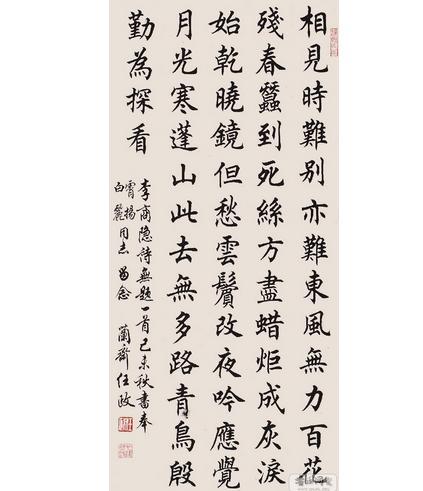 相見時難別亦難東風無力百花
殘春蠶到死絲方盡蜡炬成灰淚
始乾曉鏡但愁雲鬢改夜吟應覺
月光寒蓬山此去無多路青鳥殷
勤為探看
李商隐詩無題一首己未秋書奉
霄揚
白麓同志留念
蘭齋任政